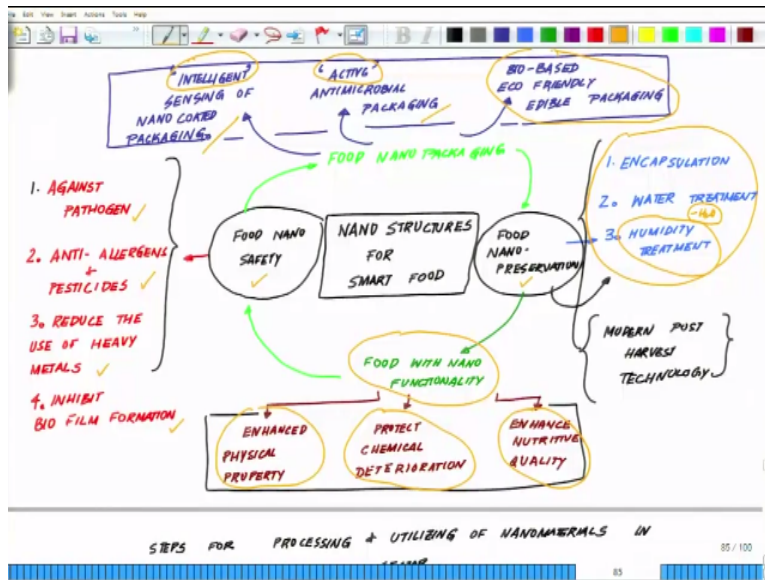 Edit View Insert Actions Tools Help
"INTELLIGENT"
SENSING OF
NANO COATED
PACKAGING.
"ACTIVE"
ANTIMICROBIAL
PACKAGING
BIO-BASED
ECO FRIENDLY
EDIBLE PACKAGING
FOOD NANO PACKAGING
1. AGAINST
PATHOGEN
2. ANTI-ALLERGENS
&
PESTICIDES
3. REDUCE THE
USE OF HEAVY
METALS
4. INHIBIT
BIO FILM FORMATION
FOOD NANO
SAFETY
NANO STRUCTURES
FOR
SMART FOOD
FOOD
NANO-
PRESERVATION
1. ENCAPSULATION
2. WATER TREATMENT
-H2O
3. HUMIDITY
TREATMENT
MODERN POST
HARVEST
TECHNOLOGY
FOOD WITH NANO
FUNCTIONALITY
ENHANCED
PHYSICAL
PROPERTY
PROTECT
CHEMICAL
DETERIORATION
ENHANCE
NUTRITIVE
QUALITY
STEPS FOR PROCESSING & UTILIZING OF NANOMATERIALS IN
85 / 100
85